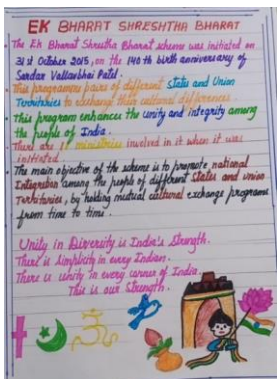 EK BHARAT SHRESHTHA BHARAT
The Ek Bharat Shrestha Bharat scheme was initiated on
31st October 2015, on the 140th birth anniversary of
Sardar Vallavbhai Patel.
This programme pairs of different States and Union
Territories to exchange their cultural differences.
This program enhances the unity and integrity among
the people of India.
There are ministries involved in it when it was
initiated.
The main objective of the scheme is to promote national
Integration among the people of different States and union
Territories, by holding mutual cultural exchange programs
from time to time.
Unity in Diversity is India's Strength.
There is Simplicity in every Indian.
There is Unity in every corner of India.
This is our Strength.